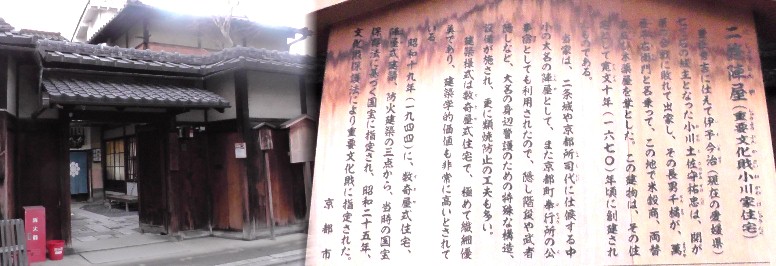 二條陣屋(重要文化財小川家住宅)
豊臣秀吉に仕えて伊予今治(現在の愛媛県)
七万石の城主となった小川土佐守祐忠は、関が
原の合戦に敗れて出家し、その長男千橘が、萬
屋平右衛門と名乗って、この地で米穀商、両替
商、木薬屋を業とした。この建物は、その住
居として寛文十年(一六七〇)年頃に創建され
たものである。
当家は、二条城や京都所司代に仕候する中
小の大名の陣屋として、また京都町奉行所の公
事宿としても利用されたので、隠し階段や武者
隠しなど、大名の身辺警護のための特殊な構造、
設備が施され、更に類焼防止の工夫も多い。
建築様式は数奇屋式住宅で、極めて繊細優
美であり、建築学的価値も非常に高いとされて
いる。
昭和十九年(一九四四)に、数奇屋式住宅、
陣屋式建築、防火建築の三点から、当時の国宝
保存法に基づく国宝に指定され、昭和二十五年、
文化財保護法により重要文化財に指定された。
京都市
消火器